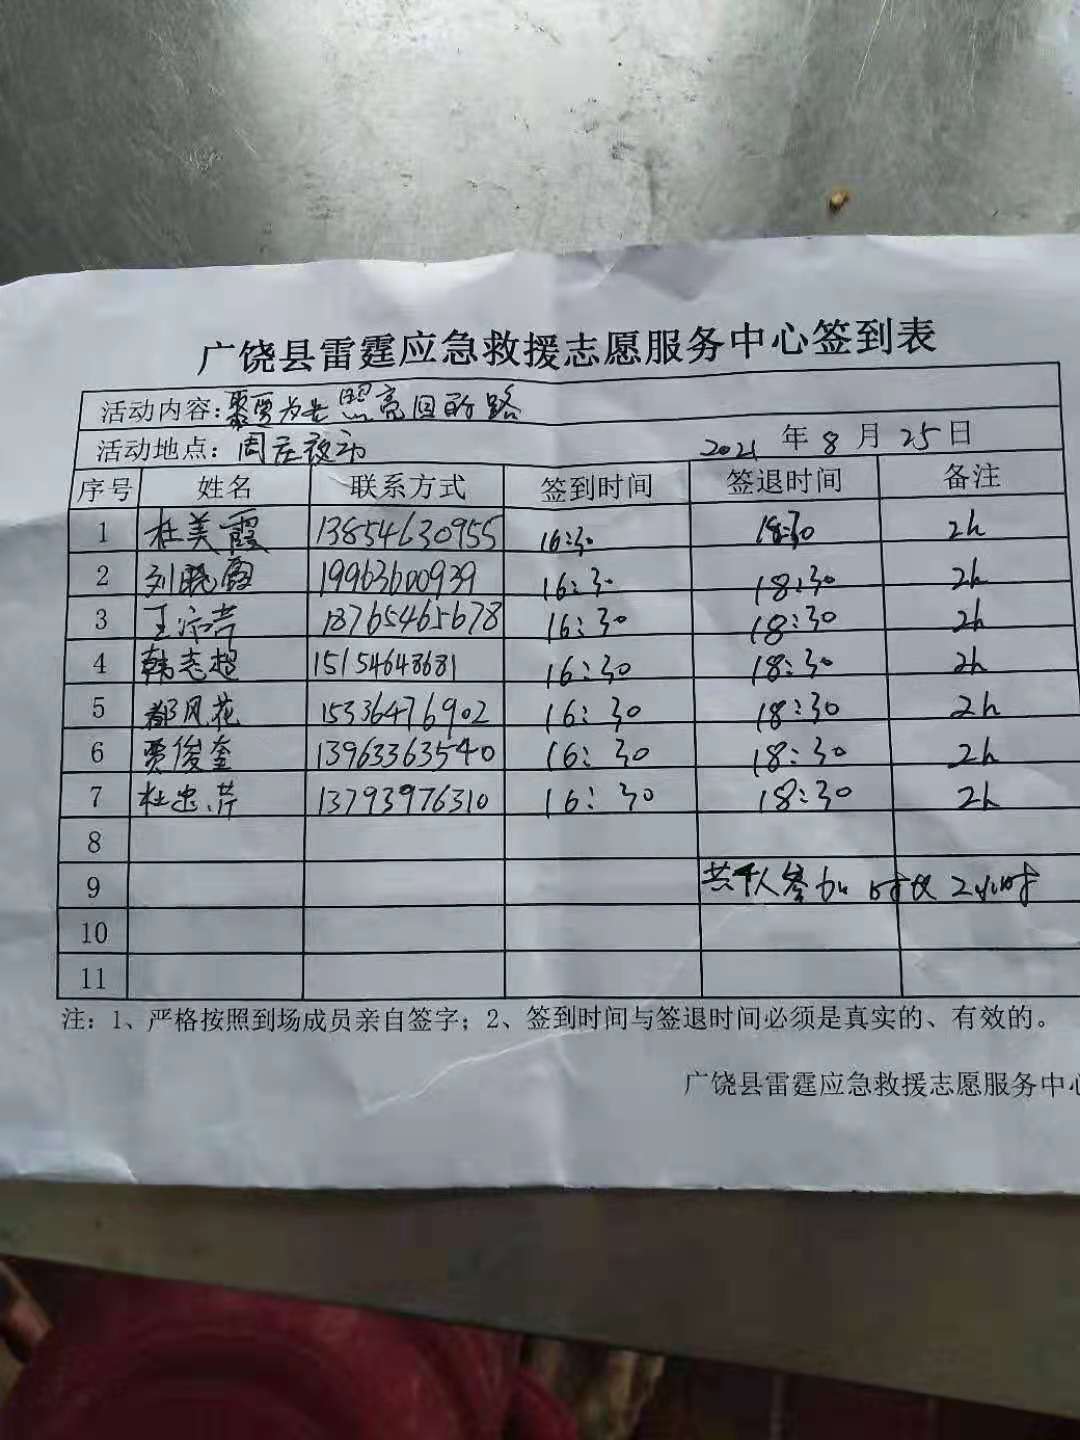 广饶县雷霆应急救援志愿服务中心签到表
活动内容: 照亮回的路
活动地点: 周庄
2021 年 8 月 25 日
序号 姓名 联系方式 签到时间 签退时间 备注
1 杜美霞 13854630955 16:30 18:30 2h
2 刘晓霞 19963600939 16:30 18:30 2h
3 王 18765465678 16:30 18:30 2h
4 韩志超 15154648681 16:30 18:30 2h
5 都风花 15336476902 16:30 18:30 2h
6 贾俊奎 13963363540 16:30 18:30 2h
7 杜忠芹 13793976310 16:30 18:30 2h
8
9 共7人参加 时长2小时
10
11
注: 1、严格按照到场成员亲自签字; 2、签到时间与签退时间必须是真实的、有效的。
广饶县雷霆应急救援志愿服务中心